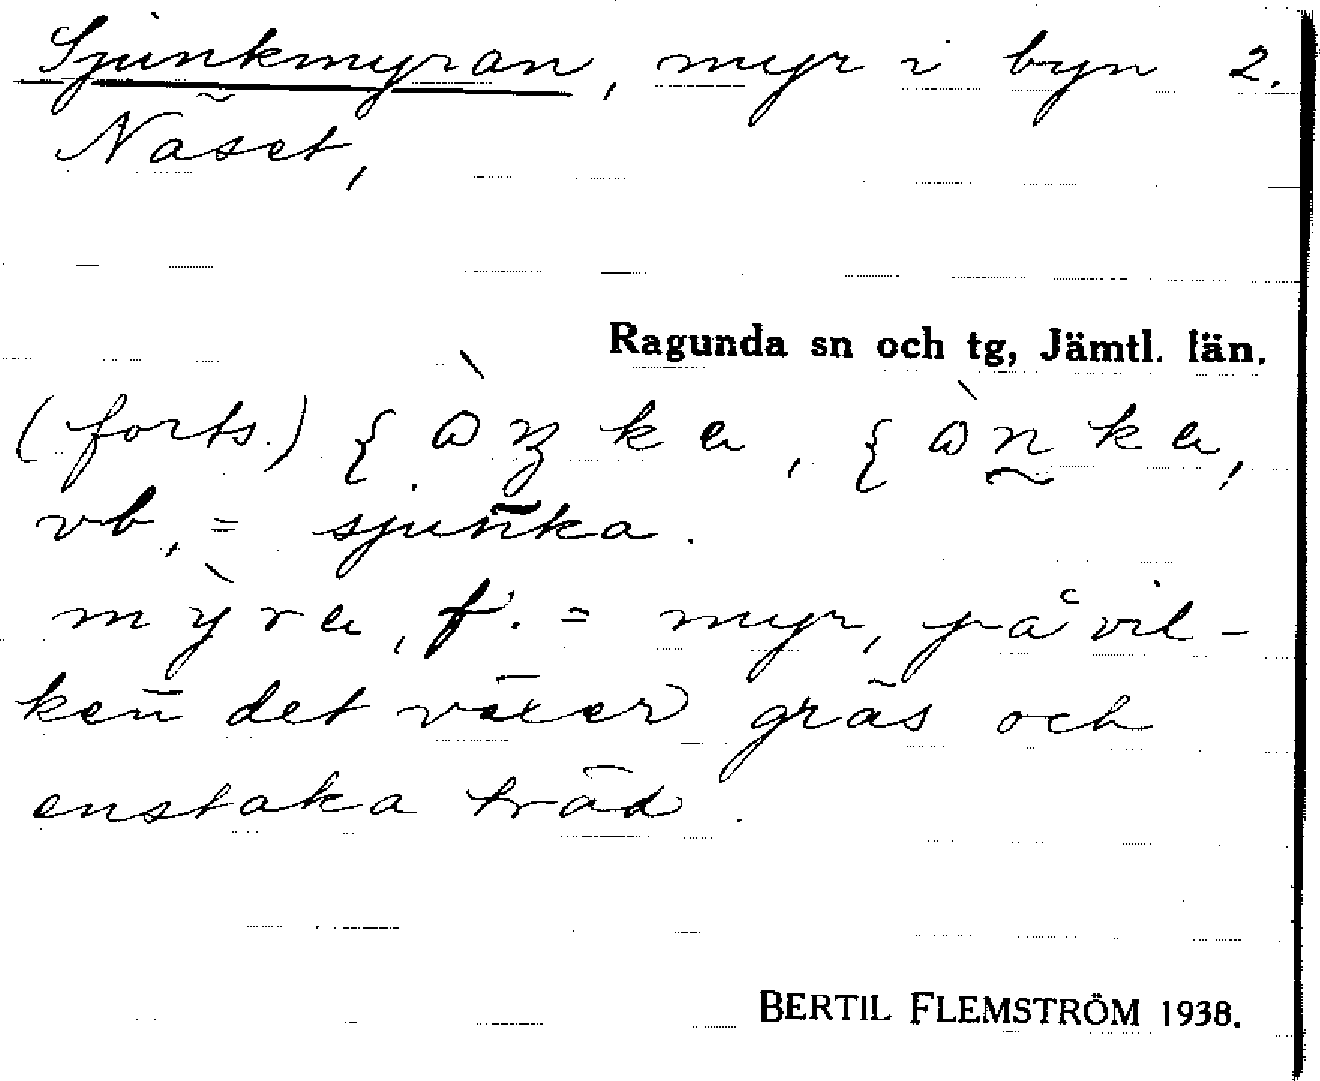 Sjunkmyran, myr i byn 2.
Näset,
Ragunda sn och tg, Jämtl. län.
(forts.)
vb, = sjunka.
mỳra, f. = myr, på vil-
ken det växer gräs och
enstaka träd.
BERTIL FLEMSTRÖM 1938.